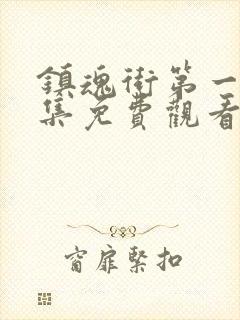 鎮魂街第一
集免費觀看
窗扉緊扣